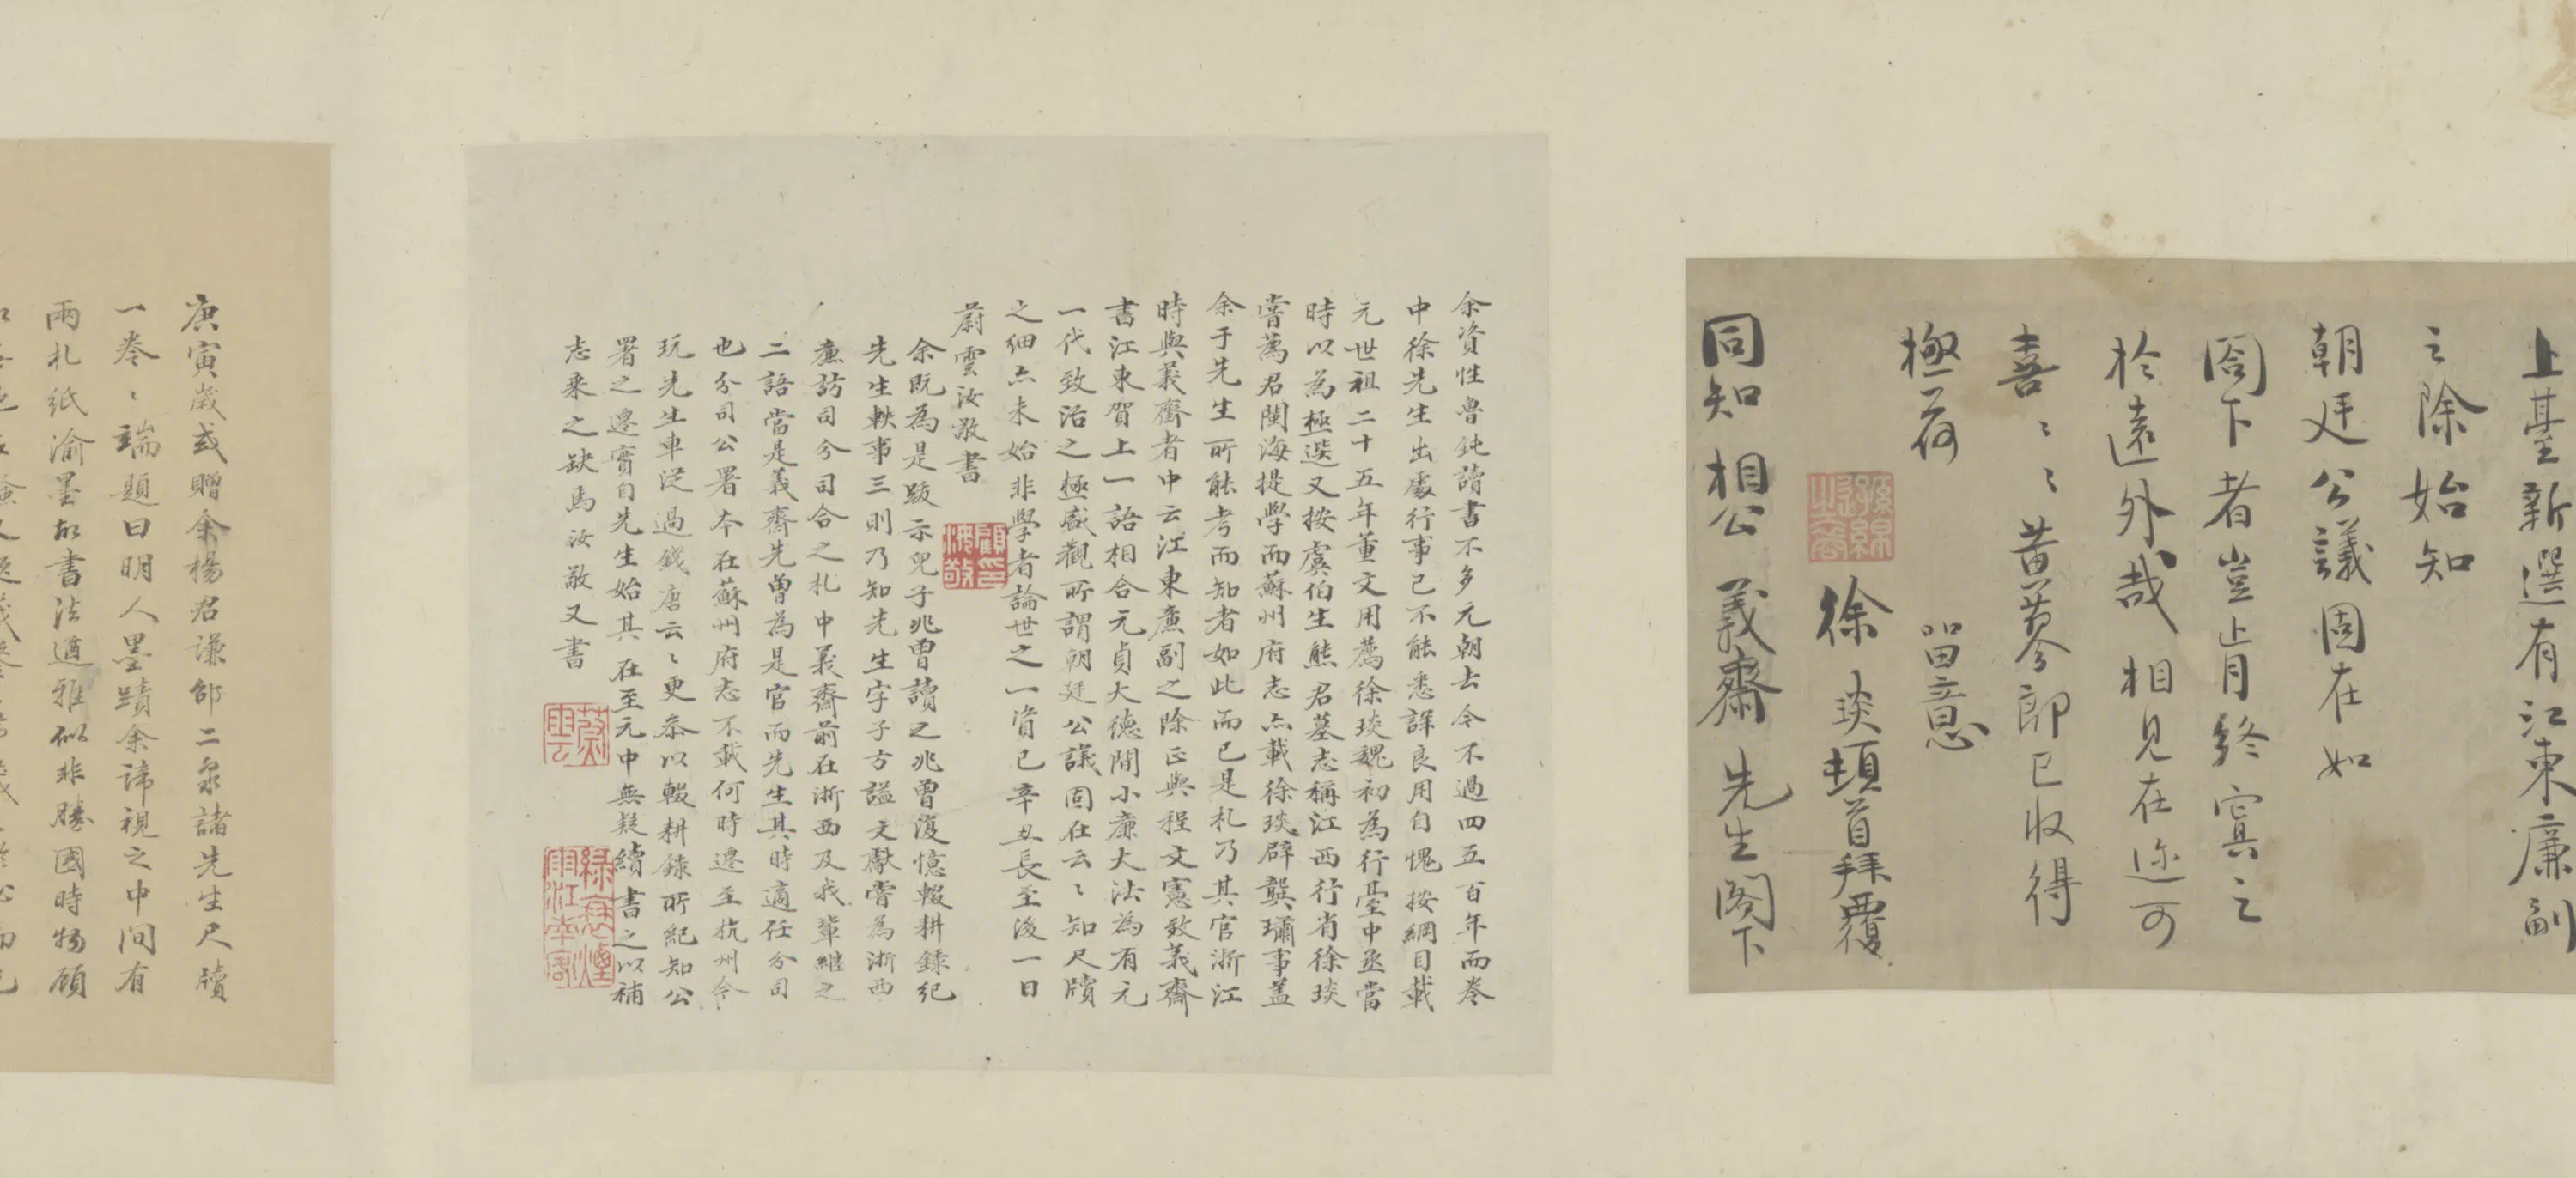 上臺新選有江東廉副
之除始知
朝廷公議固在如
閤下者豈肯終寘之
於遠外哉相見在迩可
喜〻〻黄蓡即已收得
極荷
留意
徐琰頓首拜覆
同知相公義齋先生閣下
余資性魯鈍讀書不多元朝去今不過四五百年而卷
中徐先生出處行事已不能悉詳良用自愧按綱目載
元世祖二十五年董文用薦徐琰魏初為行臺中丞當
時以為極選又按虞伯生熊君墓志稱江西行省徐琰
嘗薦君閩海提學而蘇州府志亦載徐琰辟龔璛事蓋
余于先生所能考而知者如此而已是札乃其官浙江
時與義齋者中云江東廉副之除正與程文憲致義齋
書江東賀上一語相合元貞大德間小廉大法為有元
一代致治之極盛觀所謂朝廷公議固在云〻知尺牘
之細亦未始非學者論世之一資已辛丑長至後一日
蔚雲汝敬書
顧印汝敬
余既為是跋示兒子兆曾讀之兆曾復憶輟耕錄紀
先生軼事三則乃知先生字子方謚文獻嘗為浙西
廉訪司分司合之札中義齋前在浙西及我輩繼之
二語當是義齋先曾為是官而先生其時適任分司
也分司公署本在蘇州府志不載何時遷至杭州今
玩先生車從過錢唐云〻更參以輟耕錄所紀知公
署之遷實自先生始其在至元中無疑續書之以補
志乘之缺焉汝敬又書
蔚雲
庚寅歲或贈余楊君謙邵二泉諸先生尺牘
一卷〻端題曰明人墨蹟余諦視之中間有
兩札紙渝墨故書法遒雅似非勝國時物顧